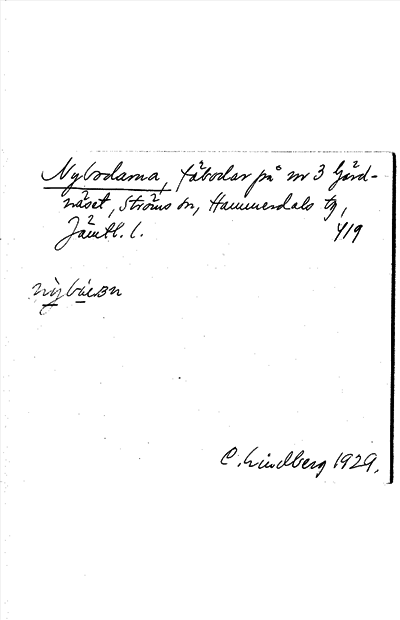 Nybodarna, fäbodar på nr 3 Gärd-
näset, Ströms sn, Hammerdals tg,
Jämtl. l. 419
C. Lindberg 1929.